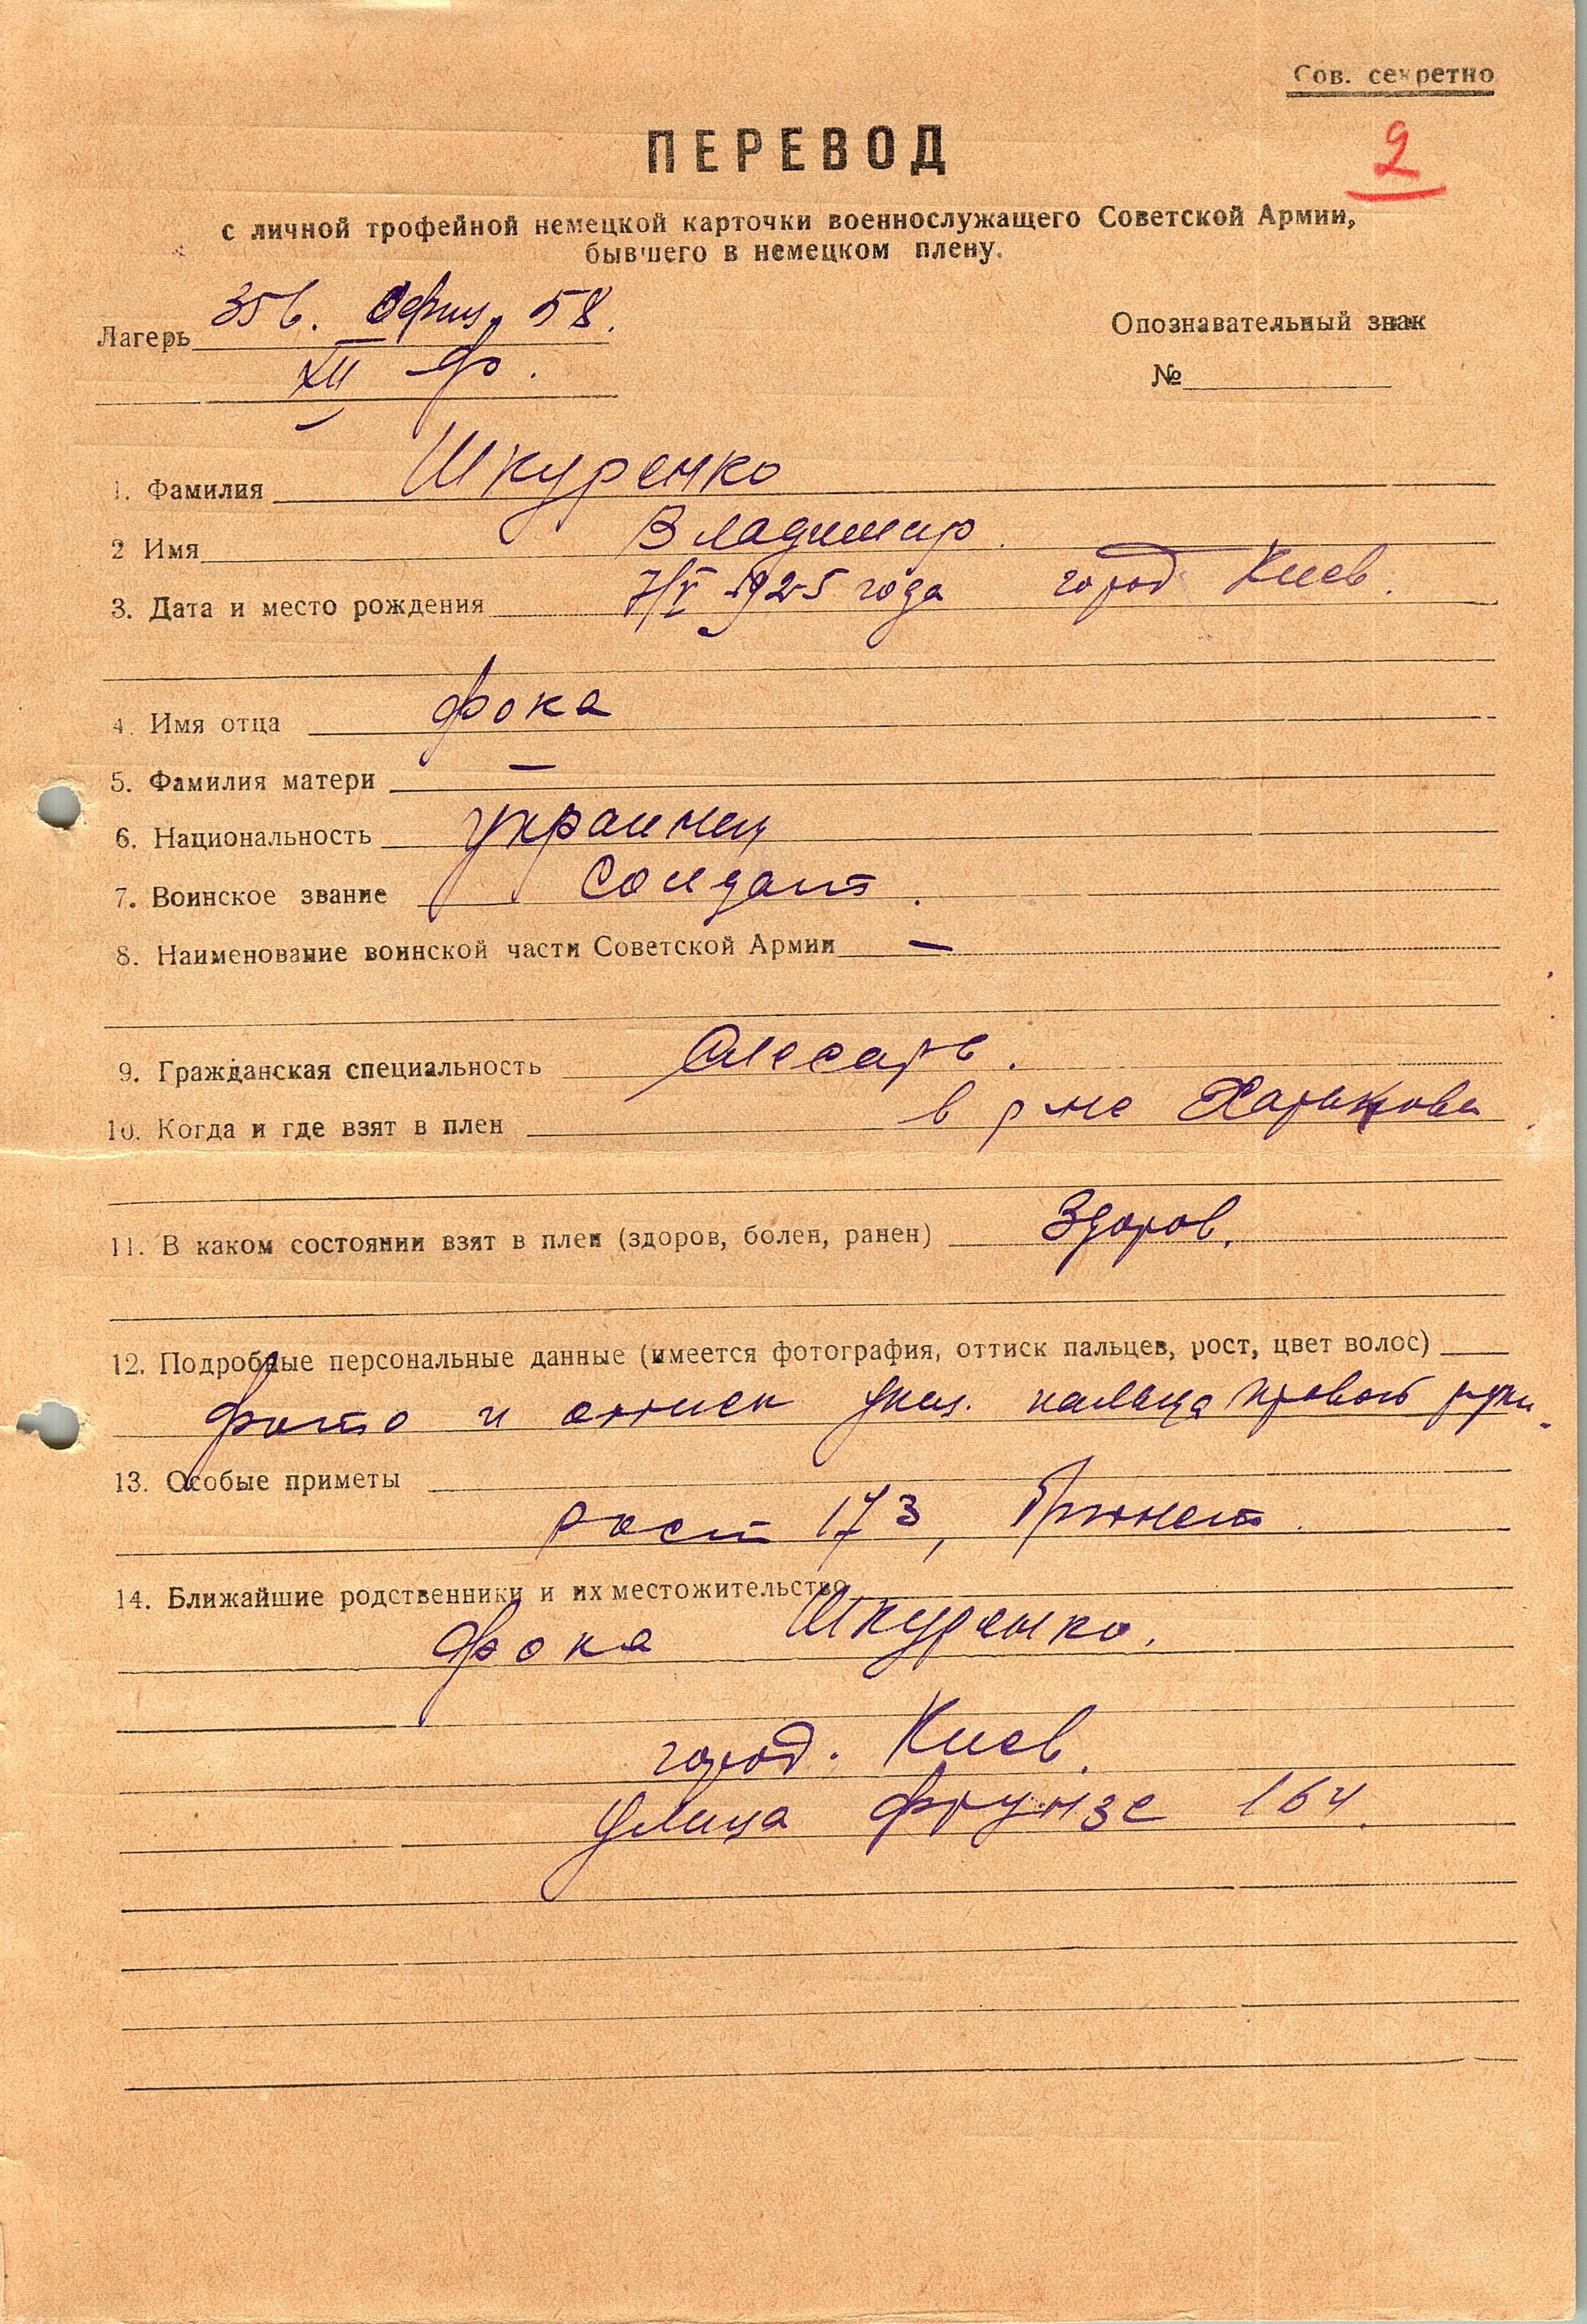 Сов. секретно
2
ПЕРЕВОД
с личной трофейной немецкой карточки военнослужащего Советской Армии,
бывшего в немецком плену.
Лагерь 356. Офиц. 58.
XII Ф.
Опознавательный знак
№
1. Фамилия Шкуренко
2 Имя Владимир.
3. Дата и место рождения 7/V 1925 года город Киев.
4. Имя отца Фока
5. Фамилия матери —
6. Национальность украинец
7. Воинское звание Солдат.
8. Наименование воинской части Советской Армии —
9. Гражданская специальность Слесарь.
10. Когда и где взят в плен в р-не Харькова
11. В каком состоянии взят в плен (здоров, болен, ранен) Здоров.
12. Подробные персональные данные (имеется фотография, оттиск пальцев, рост, цвет волос)
Фото и оттиск указ. пальца правой руки.
13. Особые приметы
рост 173, Брюнет.
14. Ближайшие родственники и их местожительство
Фока Шкуренко.
город. Киев.
улица Фрунзе 164.